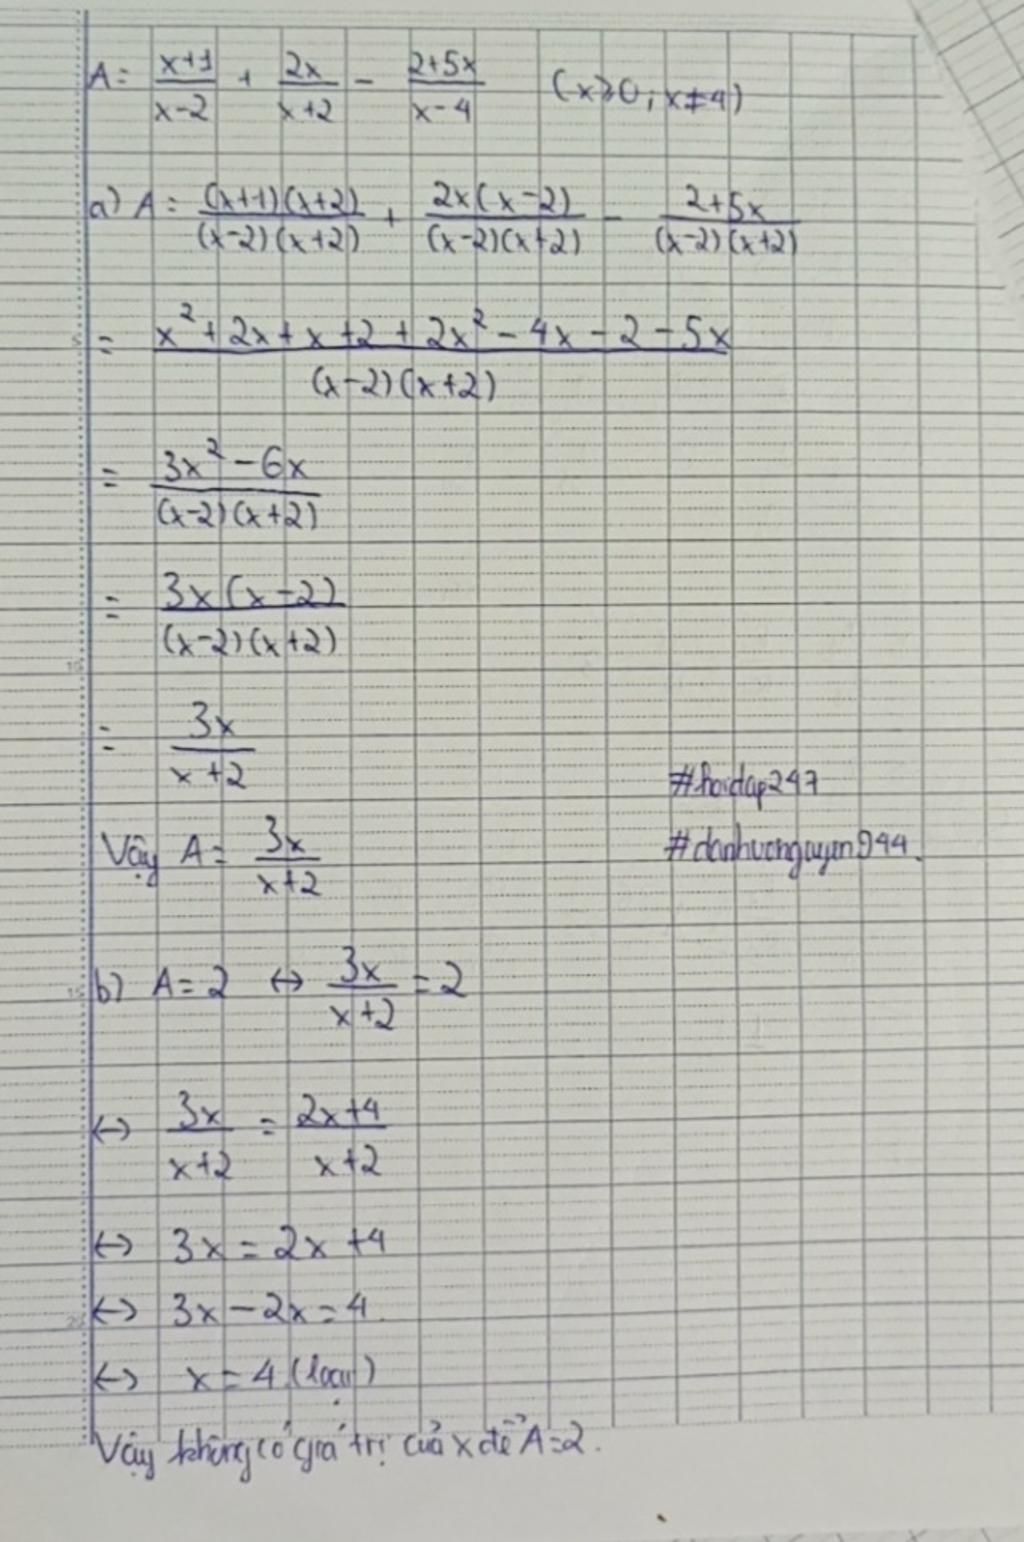 A = \frac{x+1}{x-2} + \frac{2x}{x+2} - \frac{2+5x}{x-4} (x≥0; x≠4)
a) A = \frac{(x+1)(x+2)}{(x-2)(x+2)} + \frac{2x(x-2)}{(x-2)(x+2)} - \frac{2+5x}{(x-2)(x+2)}
= \frac{x^2+2x+x+2+2x^2-4x-2-5x}{(x-2)(x+2)}
= \frac{3x^2-6x}{(x-2)(x+2)}
= \frac{3x(x-2)}{(x-2)(x+2)}
= \frac{3x}{x+2}
#hoidap247
Vậy A = \frac{3x}{x+2}
b) A = 2 ↔ \frac{3x}{x+2} = 2
↔ \frac{3x}{x+2} = \frac{2x+4}{x+2}
↔ 3x = 2x+4
↔ 3x-2x=4
↔ x=4 (loại)
Vậy không có giá trị của x để A=2.